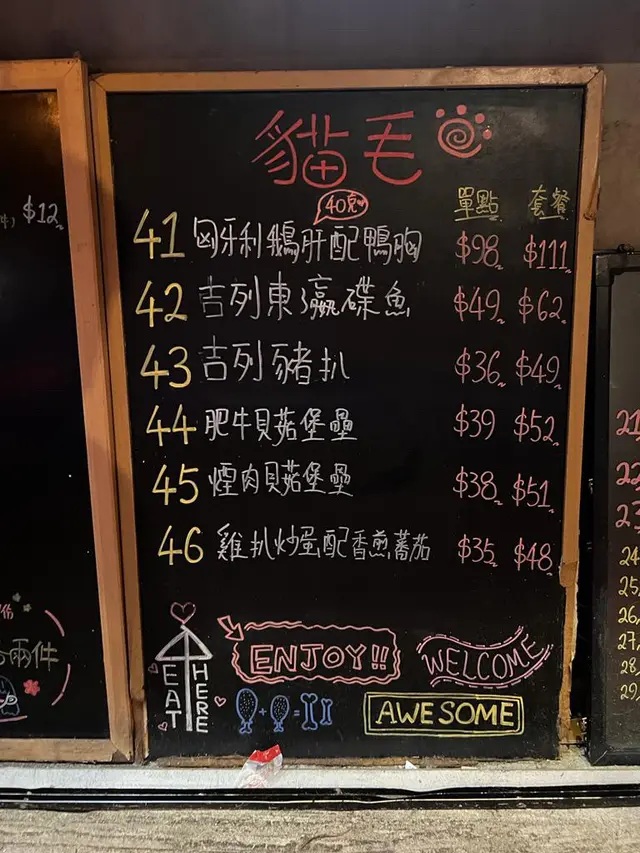 貓毛
單點 套餐
40克
41 匈牙利鵝肝配鴨胸 $98 $111
42 吉列東瀛碟魚 $49 $62
43 吉列豬扒 $36 $49
44 肥牛貝菇堡壘 $39 $52
45 煙肉貝菇堡壘 $38 $51
46 雞扒炒蛋配香煎蕃茄 $35 $48
EAT HERE
ENJOY!!
WELCOME
AWESOME
$12
兩件
21
22
23
24
25,
26,
27,
28,
29,